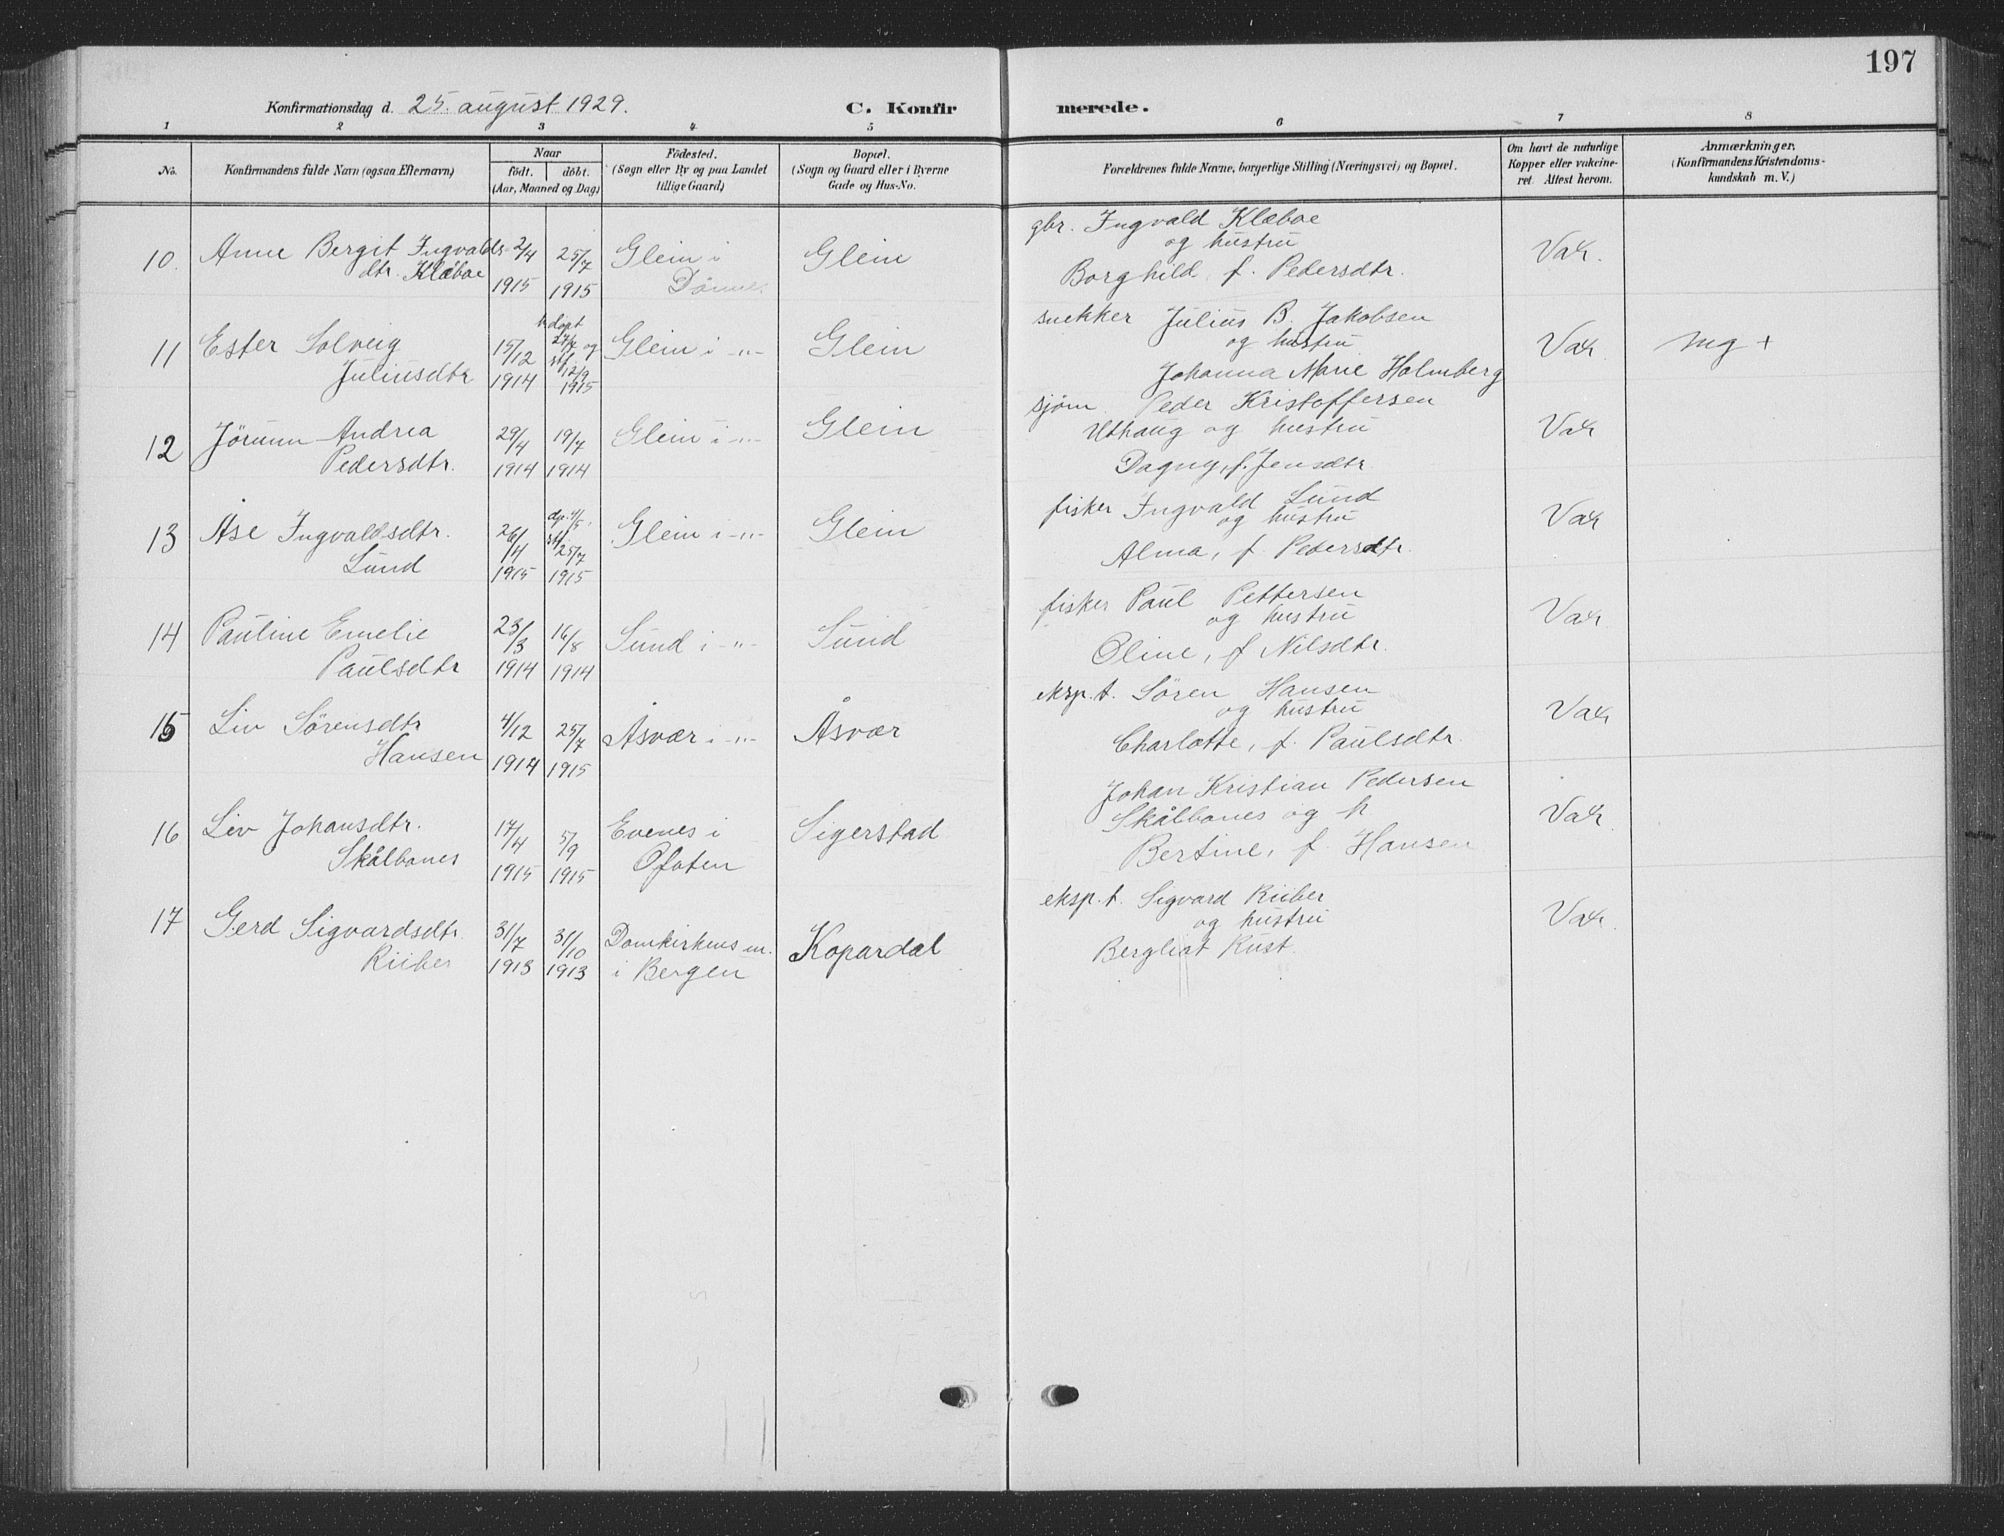 197
Konfirmationsdag d. 25. august 1929.
C. Konfirmerede.
1 2 3 4 5 6 7 8
No.
Konfirmandens fulde Navn (ogsaa Efternavn)
Naar
födt. döbt.
(Aar, Maaned og Dag)
Födested.
(Sogn eller By og paa Landet
tillige Gaard)
Bopæl.
(Sogn og Gaard eller i Byerne
Gade og Hus-No.
Forældrenes fulde Navne, borgerlige Stilling (Næringsvei) og Bopæl.
Om havt de naturlige
Kopper eller vakcine-
ret. Attest herom.
Anmærkninger.
(Konfirmandens Kristendoms-
kundskab m. V.)
10. Anne Bergit Ingvalds-
dtr. Klæboe
2/4 1915
25/7 1915
Glein i
Dönnes
Glein
gbr. Ingvald Klæboe
og hustru
Borghild f. Pedersdtr.
Vak.
11 Ester Solveig
Juliusdtr
15/12 1914
hdøpt
27/2 og
stf.
12/9
1915
Glein i -"-
Glein
snekker Julius B. Jakobsen
og hustru
Johanna Marie Holmberg
Vak
mg +
12 Jörunn Andrea
Pedersdtr.
29/4 1914
19/7 1914
Glein i -"-
Glein
sjöm. Peder Kristoffersen
Uthaug og hustru
Dagny, f. Jensdtr.
Vak
13 Åse Ingvaldsdtr.
Lund
26/4 1915
dp. 4/5.
stf.
25/7
1915
Glein i -"-
Glein
fisker Ingvald Lund
og hustru
Alma, f. Pedersdtr.
Vak
14 Pauline Emelie
Paulsdtr
23/3 1914
16/8 1914
Sund i -"-
Sund
fisker Paul Pettersen
og hustru
Oline, f. Nilsdtr.
Vak
15 Liv Sörensdtr
Hansen
4/12 1914
25/7 1915
Åsvær i -"-
Åsvær
eksp. t. Sören Hansen
og hustru
Charlotte, f. Paulsdtr.
Vak
16 Liv Johansdtr.
Skålbones
17/4 1915
5/9 1915
Evenes i
Ofoten
Sigerstad
Johan Kristian Pedersen
Skålbones og h
Bertine, f. Hansen
Vak
17 Gerd Sigvardsdtr.
Riiber
31/7 1913
31/10 1913
Domkirkens m.
i Bergen
Kopardal
eksp. t. Sigvard Riiber
og hustru
Bergliot Rust.
Vak.